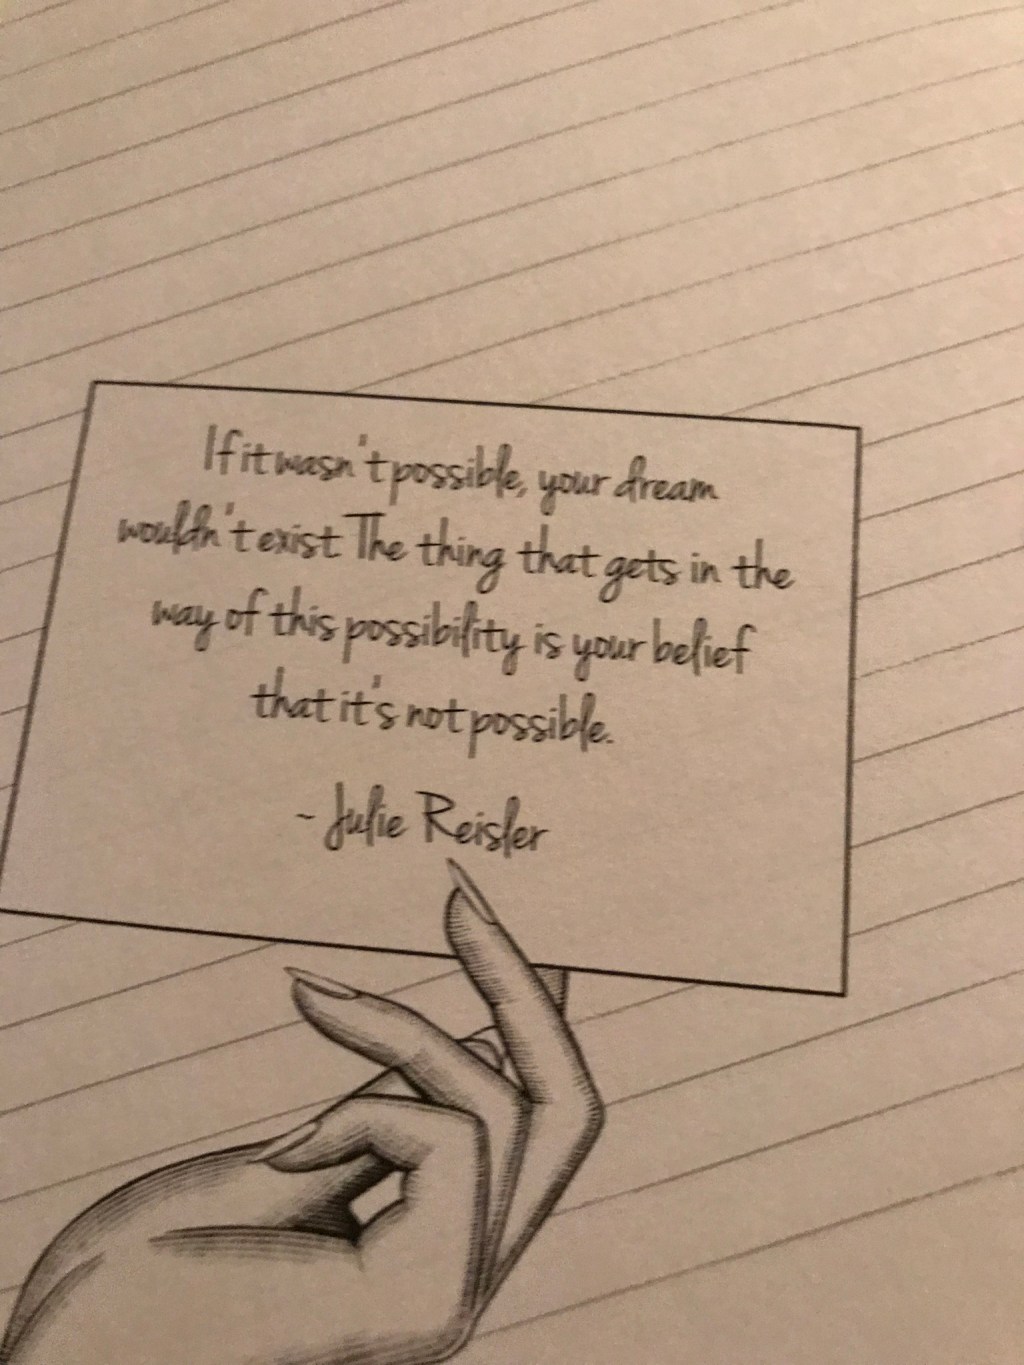 If it wasn't possible, your dream
wouldn't exist The thing that gets in the
way of this possibility is your belief
that it's not possible.
~ Julie Reisler